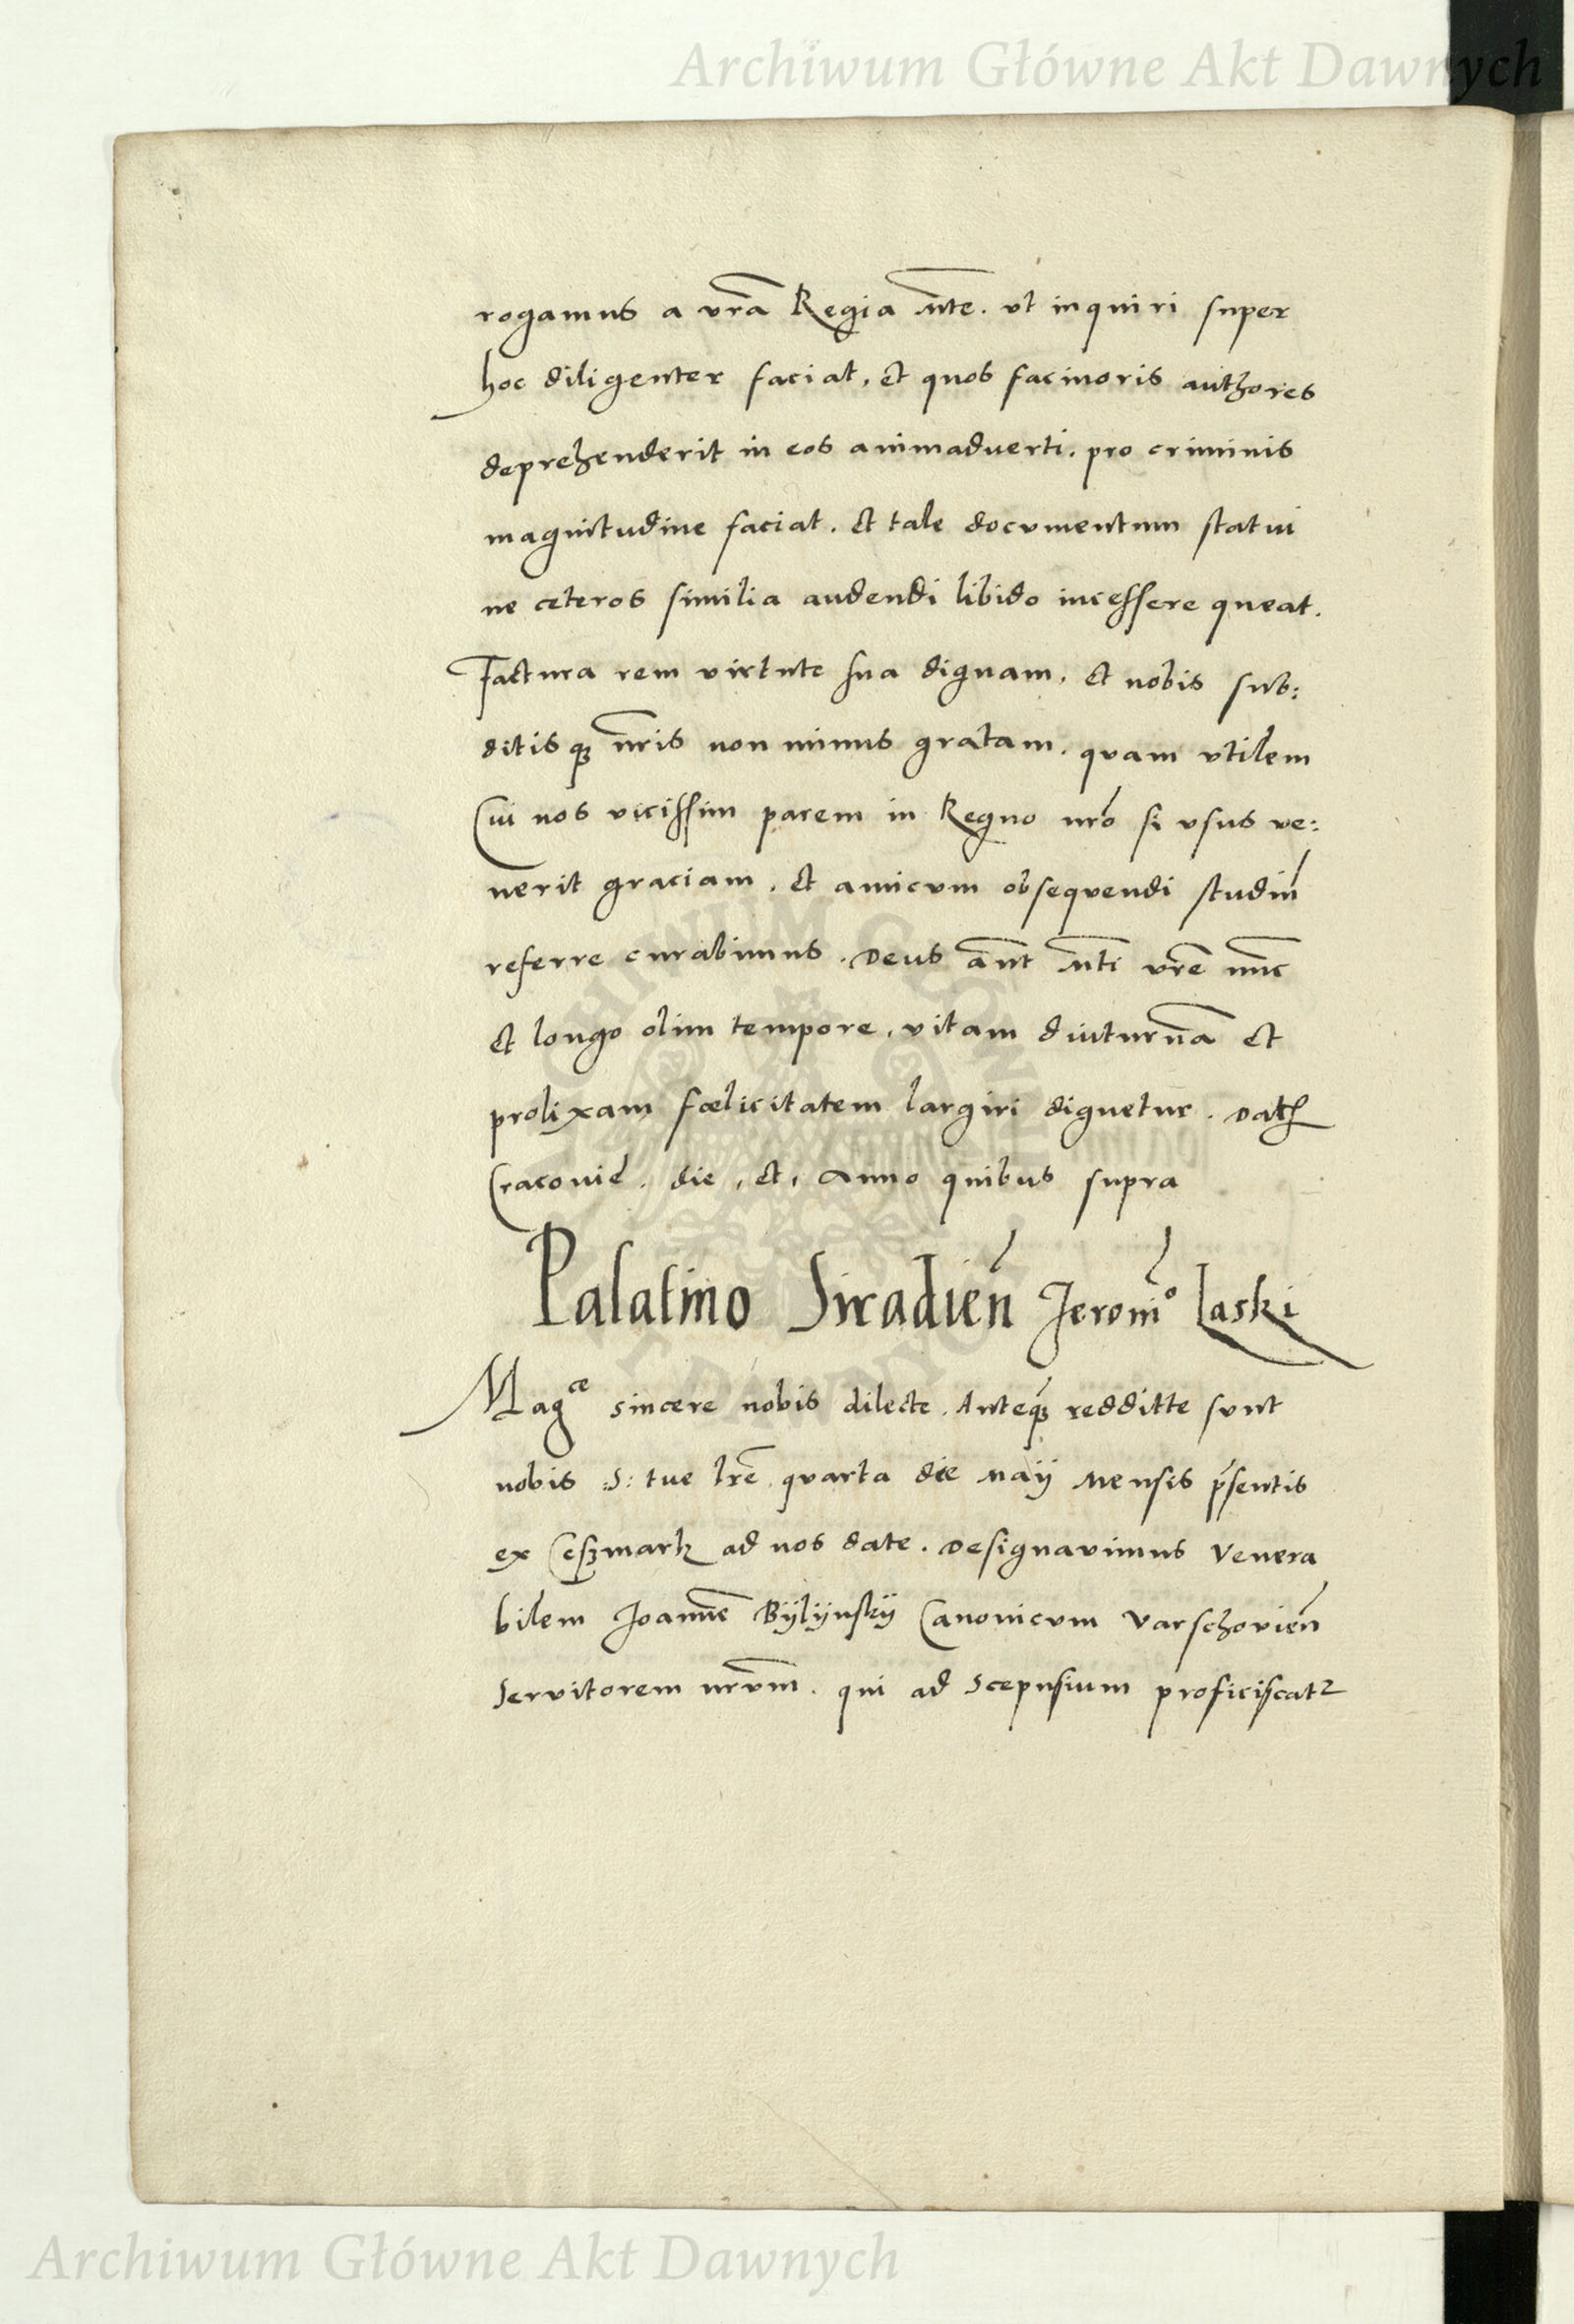 Archiwum Główne Akt Dawnych
rogamus a vrã Regia Mte. vt inquiri super
hoc diligenter faciat, et quos facinoris authores
deprehenderit in eos animadverti. pro criminis
magnitudine faciat. et tale documentum statui
ne ceteros similia audendi libido incessere queat.
Factura rem virtute sua dignam, et nobis sub:
ditisq; nris non minus gratam. quam vtilem
Cui nos vicissim parem in Regno nro si vsus ve:
nerit graciam. et amicum obsequendi studiũ
referre curabimus. Deus aut Mti vre nunc
et longo olim tempore, vitam diuturnã et
prolixam fœlicitatem largiri dignetur. Dat
Cracovie. die, et, Anno quibus supra
Palatino Siradieñ Jeronimo Laski
Magce sincere nobis dilecte. Anteq; redditte sunt
nobis :S: tue lre quarta die Maÿ Mensis p̃sentis
ex Ceszmark ad nos date. Designavimus Venera
bilem Joannẽ Bÿlÿnskÿ Canonicum Varschovieñ
Servitorem nrũm. qui ad Scepusium proficiscat2
ARCHIWUM GŁÓWNE AKT DAWNYCH
Archiwum Główne Akt Dawnych